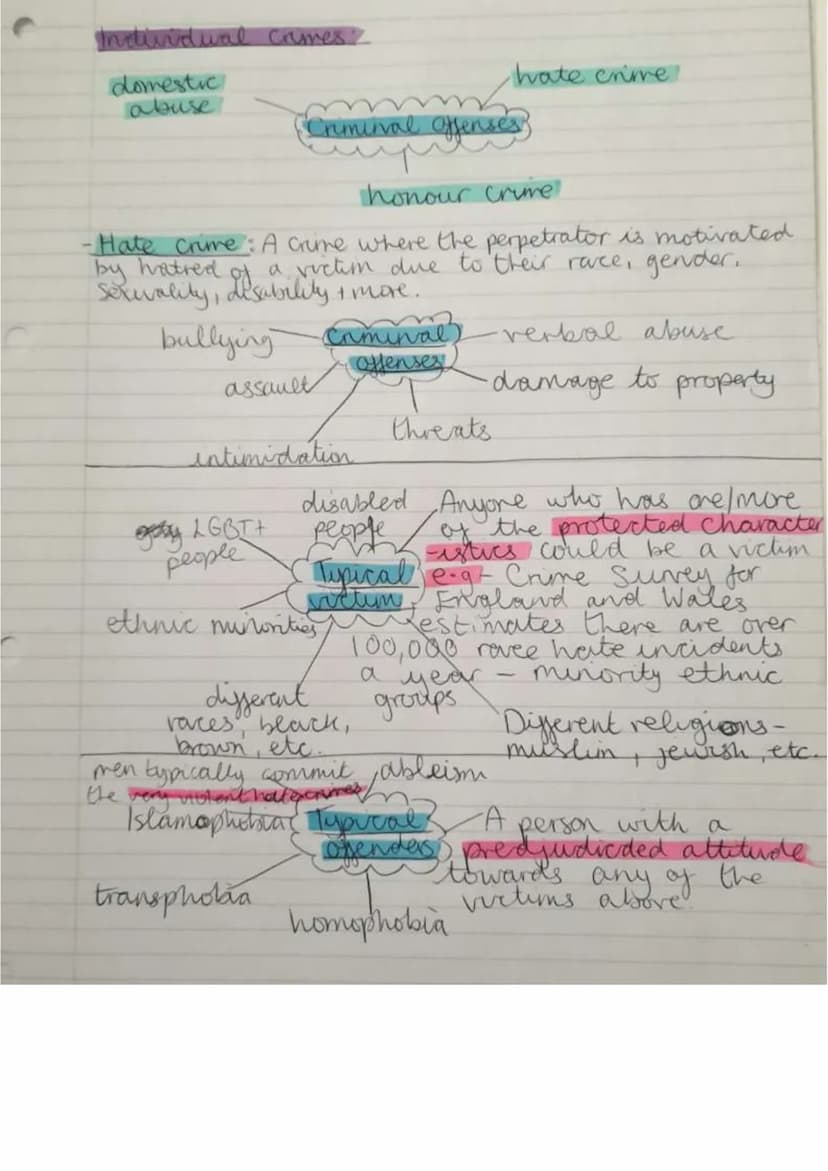 Individual Crimes:
domestic
abuse
hate crime
Criminal offenses
honour crime
- Hate crime: A crime where the perpetrator is motivated
by hatred of a victim due to their race, gender,
sexuality, disability + more.
bullying
Criminal
offenses
verbal abuse
assault
damage to property
threats
intimidation
disabled
people
LGBT+
people
Anyone who has one/more
of the protected character
-istics could be a victim
e.g - Crime Survey for
England and Wales
estimates there are over
100,000 race hate incidents
a year - minority ethnic
groups
Typical
victim
ethnic minorities
different
races, black,
brown, etc.
Different religions -
muslim, jewish, etc.
men typically commit
the very violent hate crimes
ableism
Islamophobia
Typical
offenders
A person with a
predjudicded attitude
towards any of the
victims above.
transphobia
homophobia